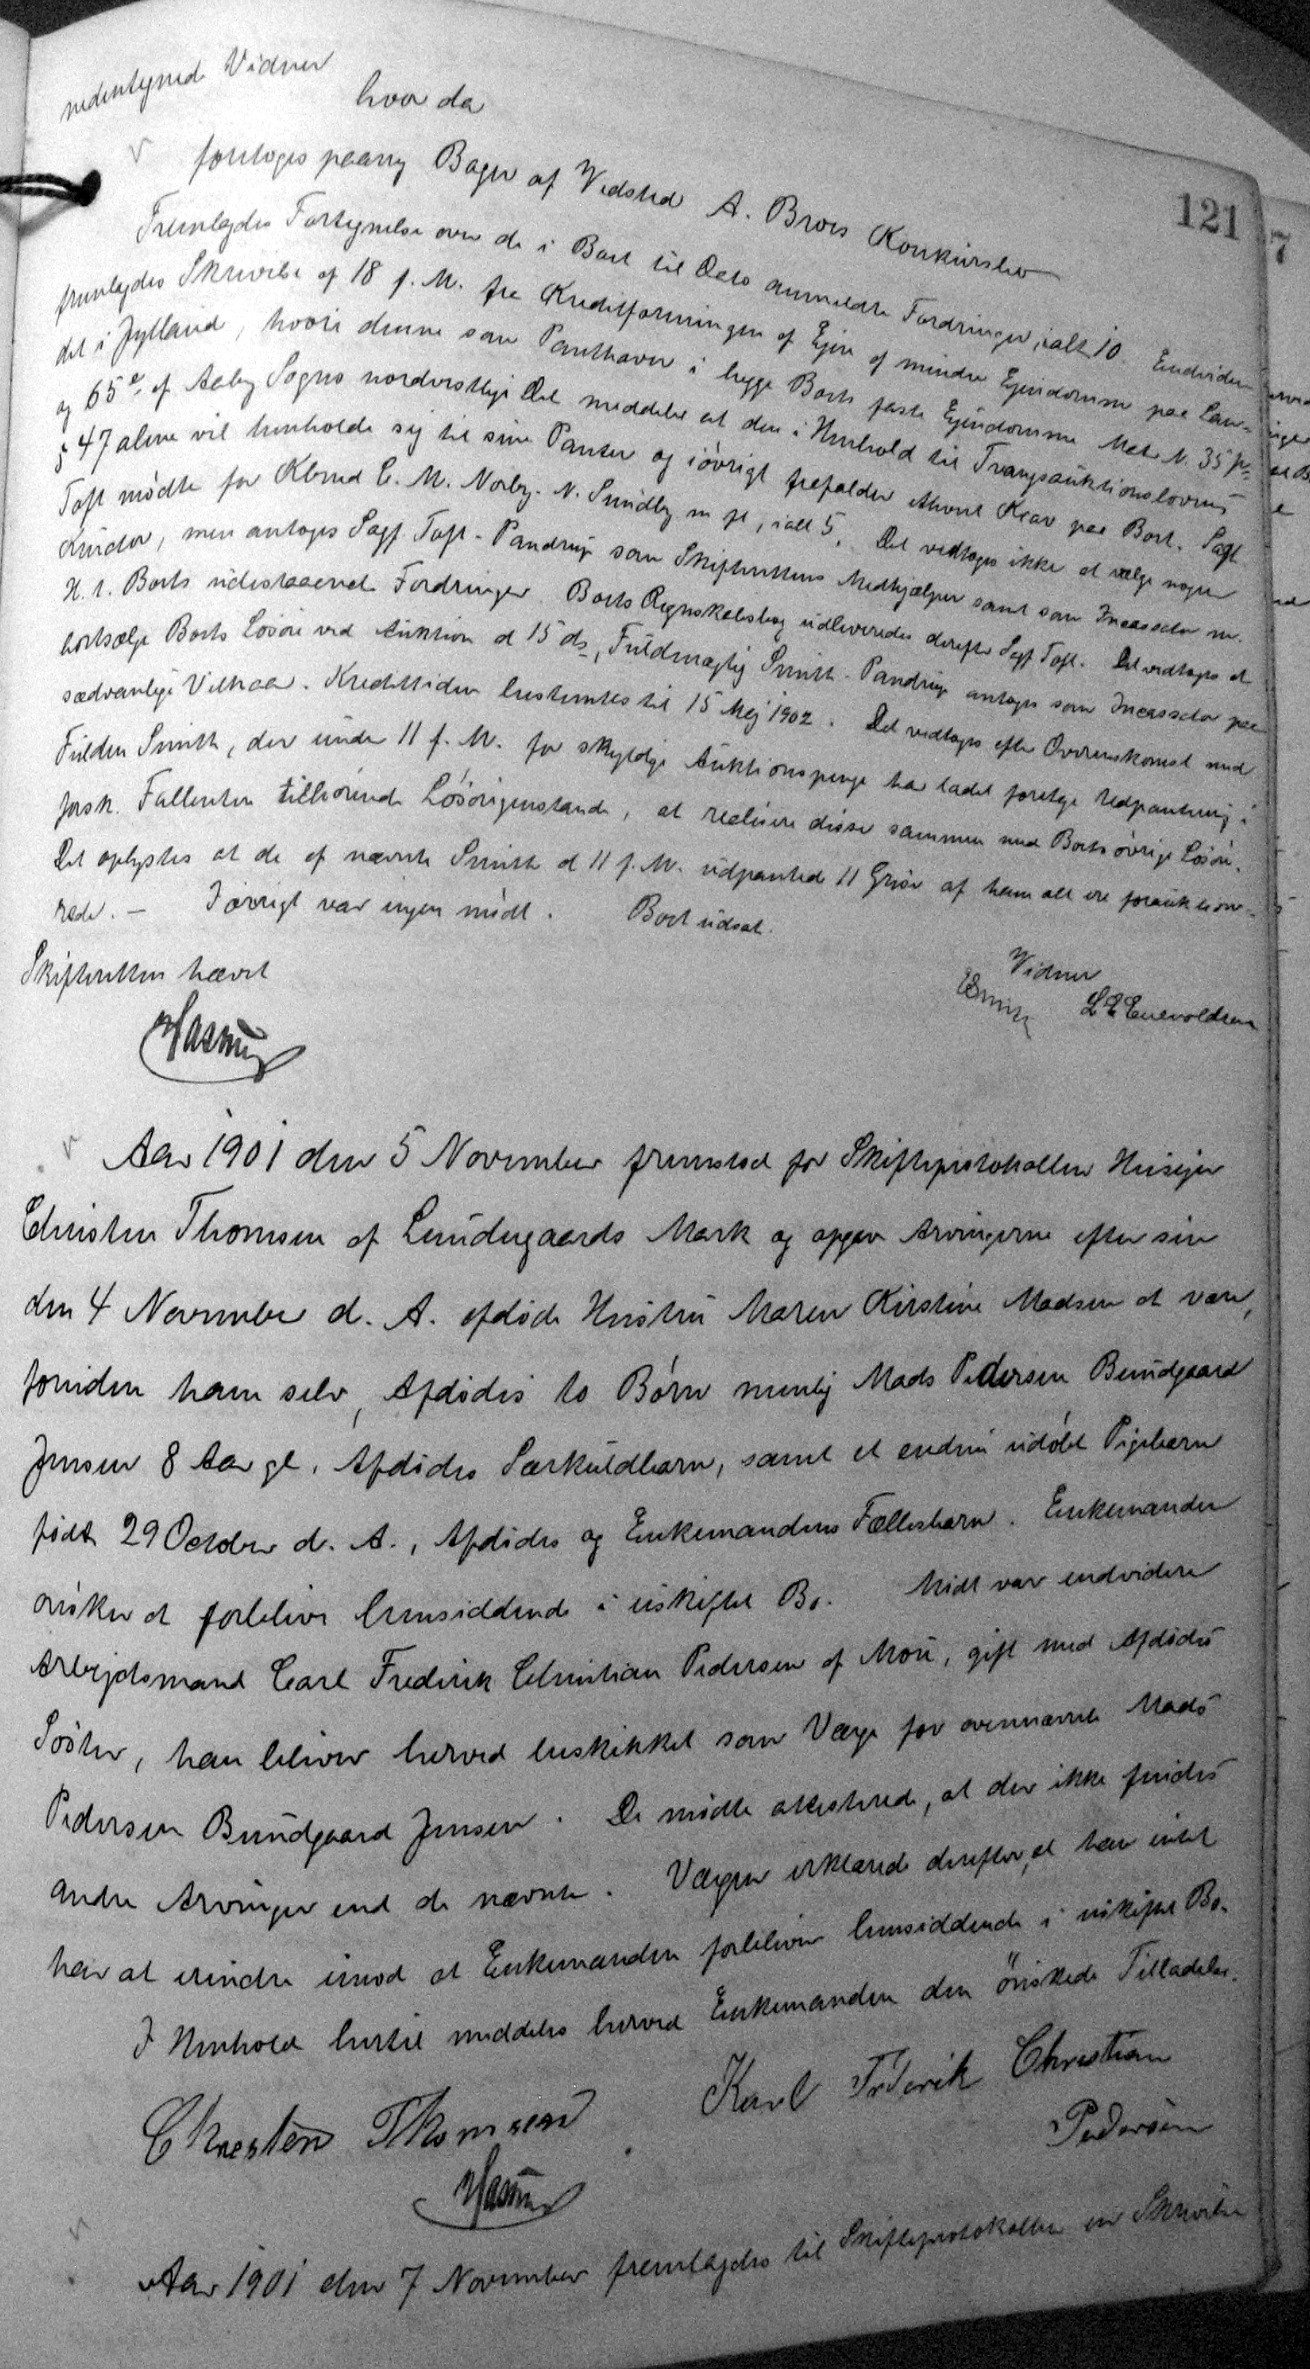 121
7
nedentegnede Vidner
hvor da
foretoges paany Bager af Vedsted A. Broes Konkursbo
Fremlagdes Fortegnelse over de i Boet til Dato anmeldte Fordringer, ialt 10. Endvidere
fremlagdes Skrivelse af 18 f. M. fra Kreditforeningen af Ejere af mindre Ejendomme paa Lan-
det i Jylland, hvori denne som Panthaver i begge Boets faste Ejendomme Matr. N. 35
og 65 af Aaby Sogns nordostlige Del meddeler at den i Henhold til Tvangsauktionslovens
§ 47 alene vil henholde sig til sine Panter og iøvrigt frafalder ethvert Krav paa Boet. Sagf.
Toft mødte for Kbmd C. M. Nørby. N. Smidby m fl, ialt 5. Det vedtoges ikke at vælge nogen
Kurator, men antoges Sagf. Toft - Pandrup som Skifterettens Medhjælper samt som Incassator m.
H. t. Boets udestaaende Fordringer. Boets Regnskabsbog udleveredes derefter Sagf Toft. Det vedtoges at
bortsælge Boets Løsøre ved Auktion d 15 ds, Fuldmægtig Smith - Pandrup antoges som Incassator paa
sædvanlige Vilkaar. Kredittiden bestemtes til 15 Maj 1902. Det vedtoges efter Overenskomst med
Fuldm Smith, der under 11 f. M. for skyldige Auktionspenge har ladet foretage Udpantning i
forsk. Fallenten tilhørende Løsøregenstande, at realisere disse sammen med Boets øvrige Løsøre.
Det oplystes at de af nævnte Smith d 11 f. M. udpantede 11 Grise af ham alt ere forauktione-
rede. - Iøvrigt var ingen mødt. Boet udsat.
Skifteretten hævet
Vidner
Smith L E Enevoldsen
Aar 1901 den 5 November fremstod for Skifteprotokollen Husejer
Christen Thomsen af Lundergaards Mark og opgav Arvingerne efter sin
den 4 November d. A. afdøde Hustru Maren Kirstine Madsen at være,
foruden ham selv, Afdødes to Børn nemlig Mads Pedersen Bundgaard
Jensen 8 Aar gl, Afdødes Særkuldbarn, samt et endnu udøbt Pigebarn
født 29 October d. A., Afdødes og Enkemandens Fællesbarn. Enkemanden
ønsker at forblive hensiddende i uskiftet Bo. Mødt var endvidere
Arbejdsmand Carl Frederik Christian Pedersen af Moue, gift med Afdødes
Søster, han bliver herved beskikket som Værge for ovennævnte Mads
Pedersen Bundgaard Jensen. De mødte attesterede, at der ikke findes
andre Arvinger end de nævnte. Værgen erklærede derefter, at han intet
har at erindre imod at Enkemanden forbliver hensiddende i uskiftet Bo.
I Henhold hertil meddeles herved Enkemanden den ønskede Tilladelse.
Chresten Thomsen
Karl Frderik Christian
Pedersen
Aar 1901 den 7 November fremlagdes til Skifteprotokollen en Skrivelse